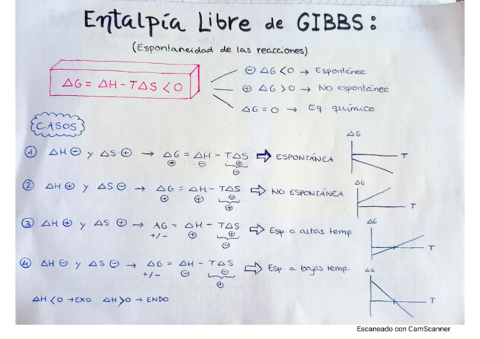 Entalpía Libre de GIBBS:
(Espontaneidad de las reacciones)
ΔG = ΔH - TΔS < 0
⊖ ΔG < 0 → Espontánea
⊕ ΔG > 0 → No espontánea
ΔG = 0 → Eq. químico
CASOS
① ΔH ⊖ y ΔS ⊕ → ΔG = ΔH - TΔS ⇒ ESPONTÁNEA
⊕ ⊖ ⊕
② ΔH ⊕ y ΔS ⊖ → ΔG = ΔH - TΔS ⇒ NO ESPONTÁNEA
⊕ ⊕ ⊖
③ ΔH ⊕ y ΔS ⊕ → ΔG = ΔH - TΔS ⇒ Esp a altas temp
+/- ⊕ ⊕
④ ΔH ⊖ y ΔS ⊖ → ΔG = ΔH - TΔS ⇒ Esp a bajas temp.
+/- ⊖ ⊖
ΔH < 0 → EXO ΔH > 0 → ENDO
ΔG
T
ΔG
T
ΔG
T
ΔG
T
Escaneado con CamScanner